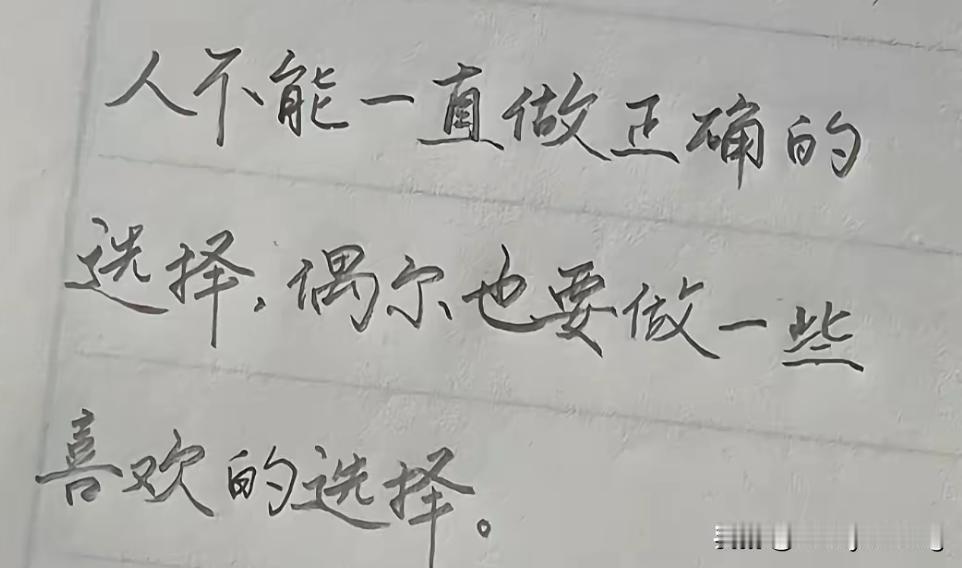 人不能一直做正确的
选择，偶尔也要做一些
喜欢的选择。